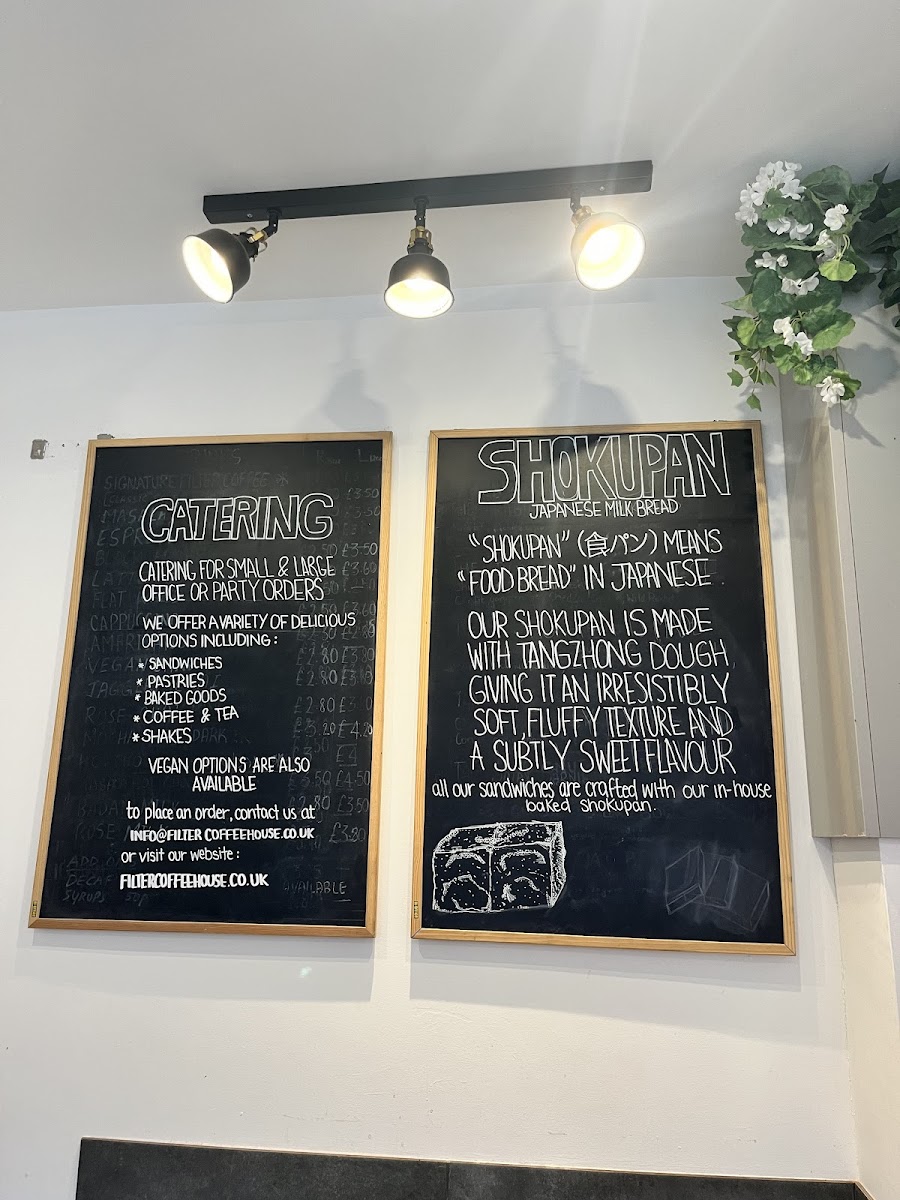 CATERING
CATERING FOR SMALL & LARGE
OFFICE OR PARTY ORDERS
WE OFFER A VARIETY OF DELICIOUS
OPTIONS INCLUDING:
* SANDWICHES
* PASTRIES
* BAKED GOODS
* COFFEE & TEA
* SHAKES
VEGAN OPTIONS ARE ALSO
AVAILABLE
to place an order, contact us at
INFO@FILTERCOFFEEHOUSE.CO.UK
or visit our website:
FILTERCOFFEEHOUSE.CO.UK
AVAILABLE
SIGNATURE FILTER COFFEE
SHOKUPAN
JAPANESE MILK BREAD
"SHOKUPAN" (食パン) MEANS
"FOOD BREAD" IN JAPANESE.
OUR SHOKUPAN IS MADE
WITH TANGZHONG DOUGH,
GIVING IT AN IRRESISTIBLY
SOFT, FLUFFY TEXTURE AND
A SUBTLY SWEET FLAVOUR
all our sandwiches are crafted with our in-house
baked shokupan.